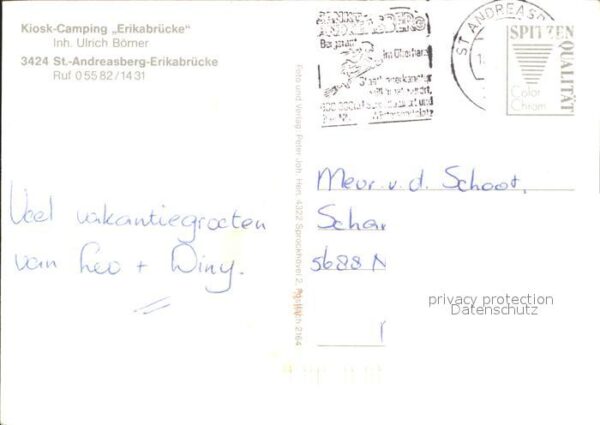 Kiosk-Camping „Erikabrücke"
Inh. Ulrich Börner
3424 St.-Andreasberg-Erikabrücke
Ruf 0 55 82 / 14 31
Veel vakantiegroeten
van Leo + Winy.
Foto und Verlag: Peter Joh. Hen, 4322 Sprockhövel 2, Postfach 2164
SANKT
ANDREASBERG
Bergstadt
im Oberharz
ST ANDREASB
SPITZEN
QUALITÄT
Color
Chrom
Mevr. v. d. Schoot,
Schar
5688 N
privacy protection
Datenschutz